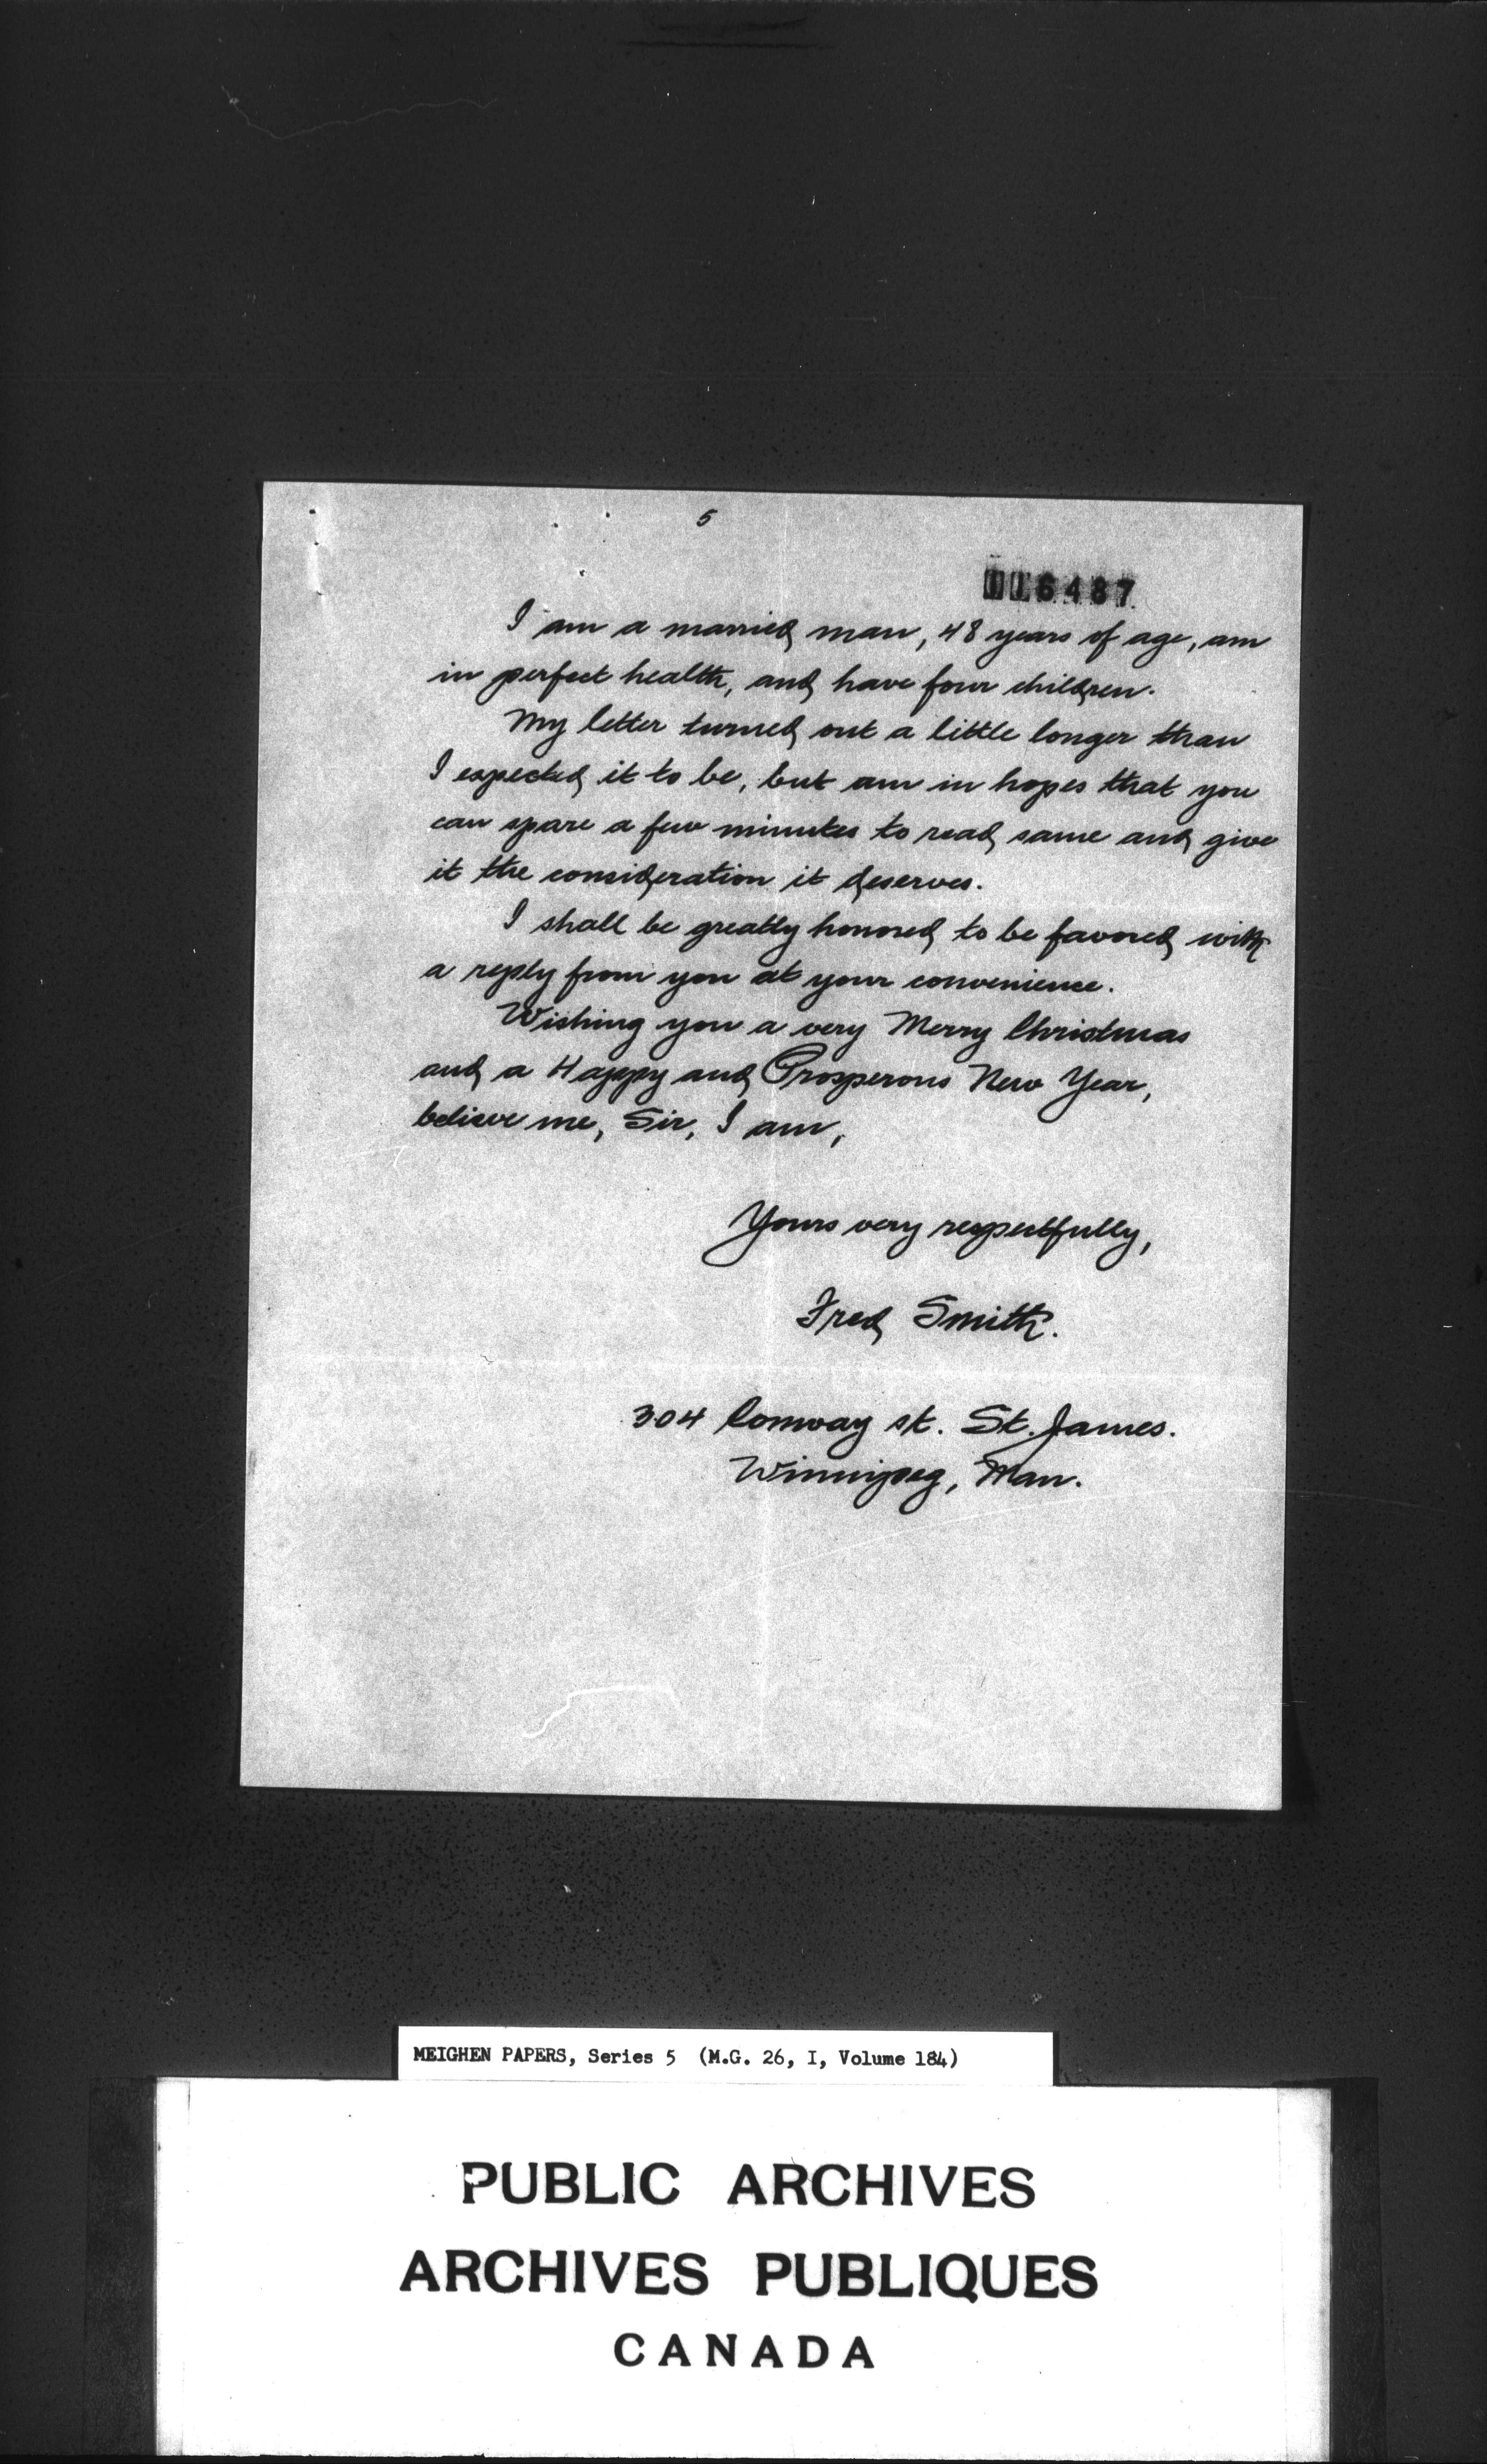 5
116487
I am a married man, 48 years of age, am
in perfect health, and have four children.
My letter turned out a little longer than
I expected it to be, but am in hopes that you
can spare a few minutes to read same and give
it the consideration it deserves.
I shall be greatly honored to be favored with
a reply from you at your convenience.
Wishing you a very Merry Christmas
and a Happy and Prosperous New Year,
believe me, Sir, I am,
Yours very respectfully,
Fred Smith.
304 Conway st. St. James.
Winnipeg, Man.
MEIGHEN PAPERS, Series 5 (M.G. 26, I, Volume 184)
PUBLIC ARCHIVES
ARCHIVES PUBLIQUES
CANADA